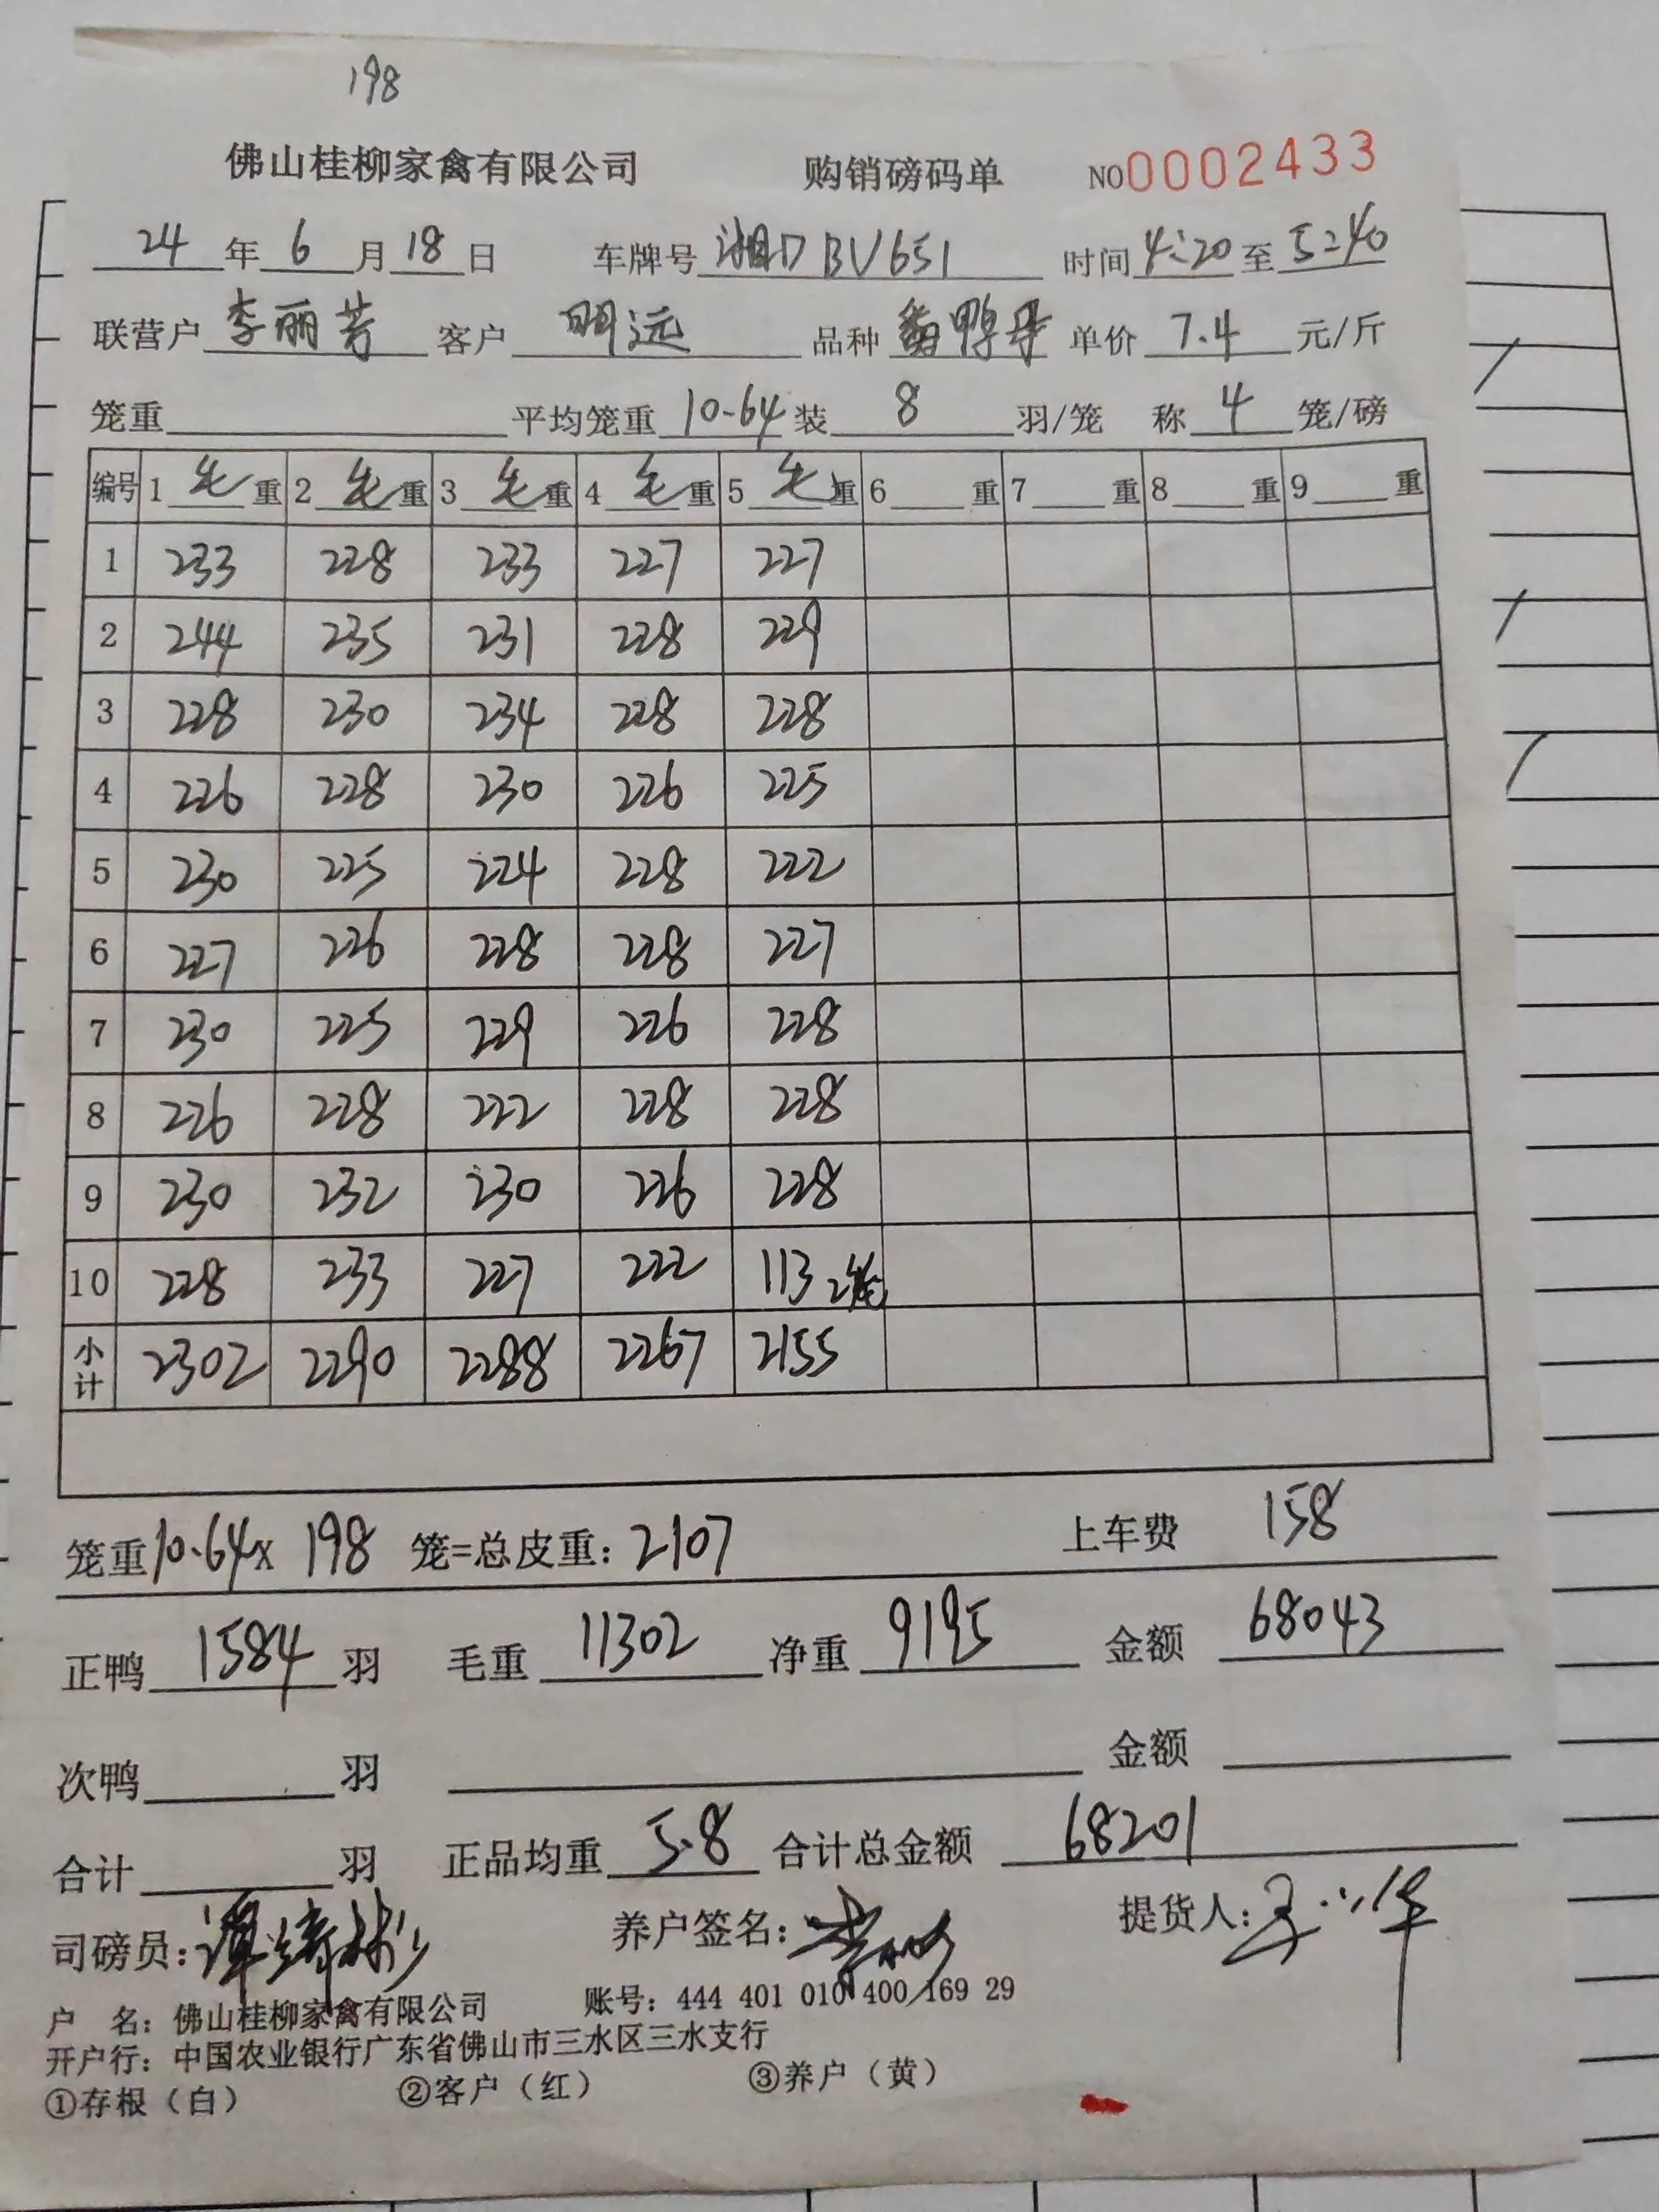 198
佛山桂柳家禽有限公司 购销磅码单 NO0002433
24年6月18日 车牌号 湘D BV651 时间4:20至5:40
联营户 李丽芳 客户 明远 品种 单价 7.4 元/斤
笼重 平均笼重 10.64 装 8 羽/笼 称 4 笼/磅
编号 1 毛 重 2 毛 重 3 毛 重 4 毛 重 5 毛 重 6 重 7 重 8 重 9 重
1 233 228 233 227 227
2 244 235 231 228 229
3 228 230 234 228 228
4 226 228 230 226 225
5 230 225 224 228 222
6 227 226 228 228 227
7 230 225 229 226 228
8 226 228 222 228 228
9 230 232 230 226 228
10 228 233 227 222 113 2笼
小计 2302 2290 2288 2267 2155
笼重10.64x 198 笼=总皮重:2107 上车费 158
正鸭 1584 羽 毛重 11302 净重 9195 金额 68043
次鸭 羽 金额
合计 羽 正品均重 5.8 合计总金额 68201
司磅员: 养户签名: 提货人:
户 名:佛山桂柳家禽有限公司 账号:444 401 010 400 169 29
开户行:中国农业银行广东省佛山市三水区三水支行
①存根(白) ②客户(红) ③养户(黄)